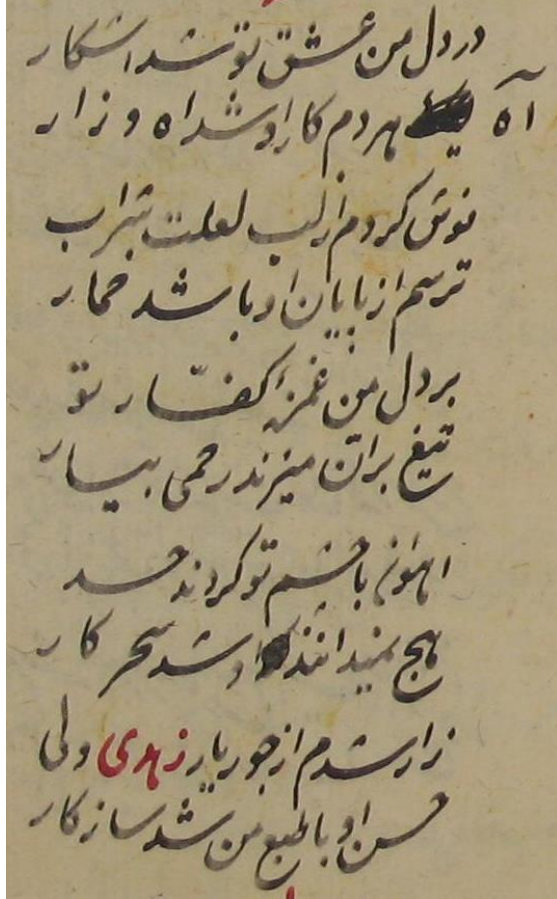 در دل من عشق تو شد اشکار
آه هر دم کار او شد اه و زار
نوش کردم از لب لعلت شراب
ترسم از پایان او باشد خمار
بر دل من غمزهٔ کفّار تو
تیغ بران میزند رحمی بیار
اهوئی با چشم تو کردند حسد
هیچ نمیدانند او شد سحر کار
زار شدم از جور یار زهدی ولی
حسن او با طبع من شد سازکار